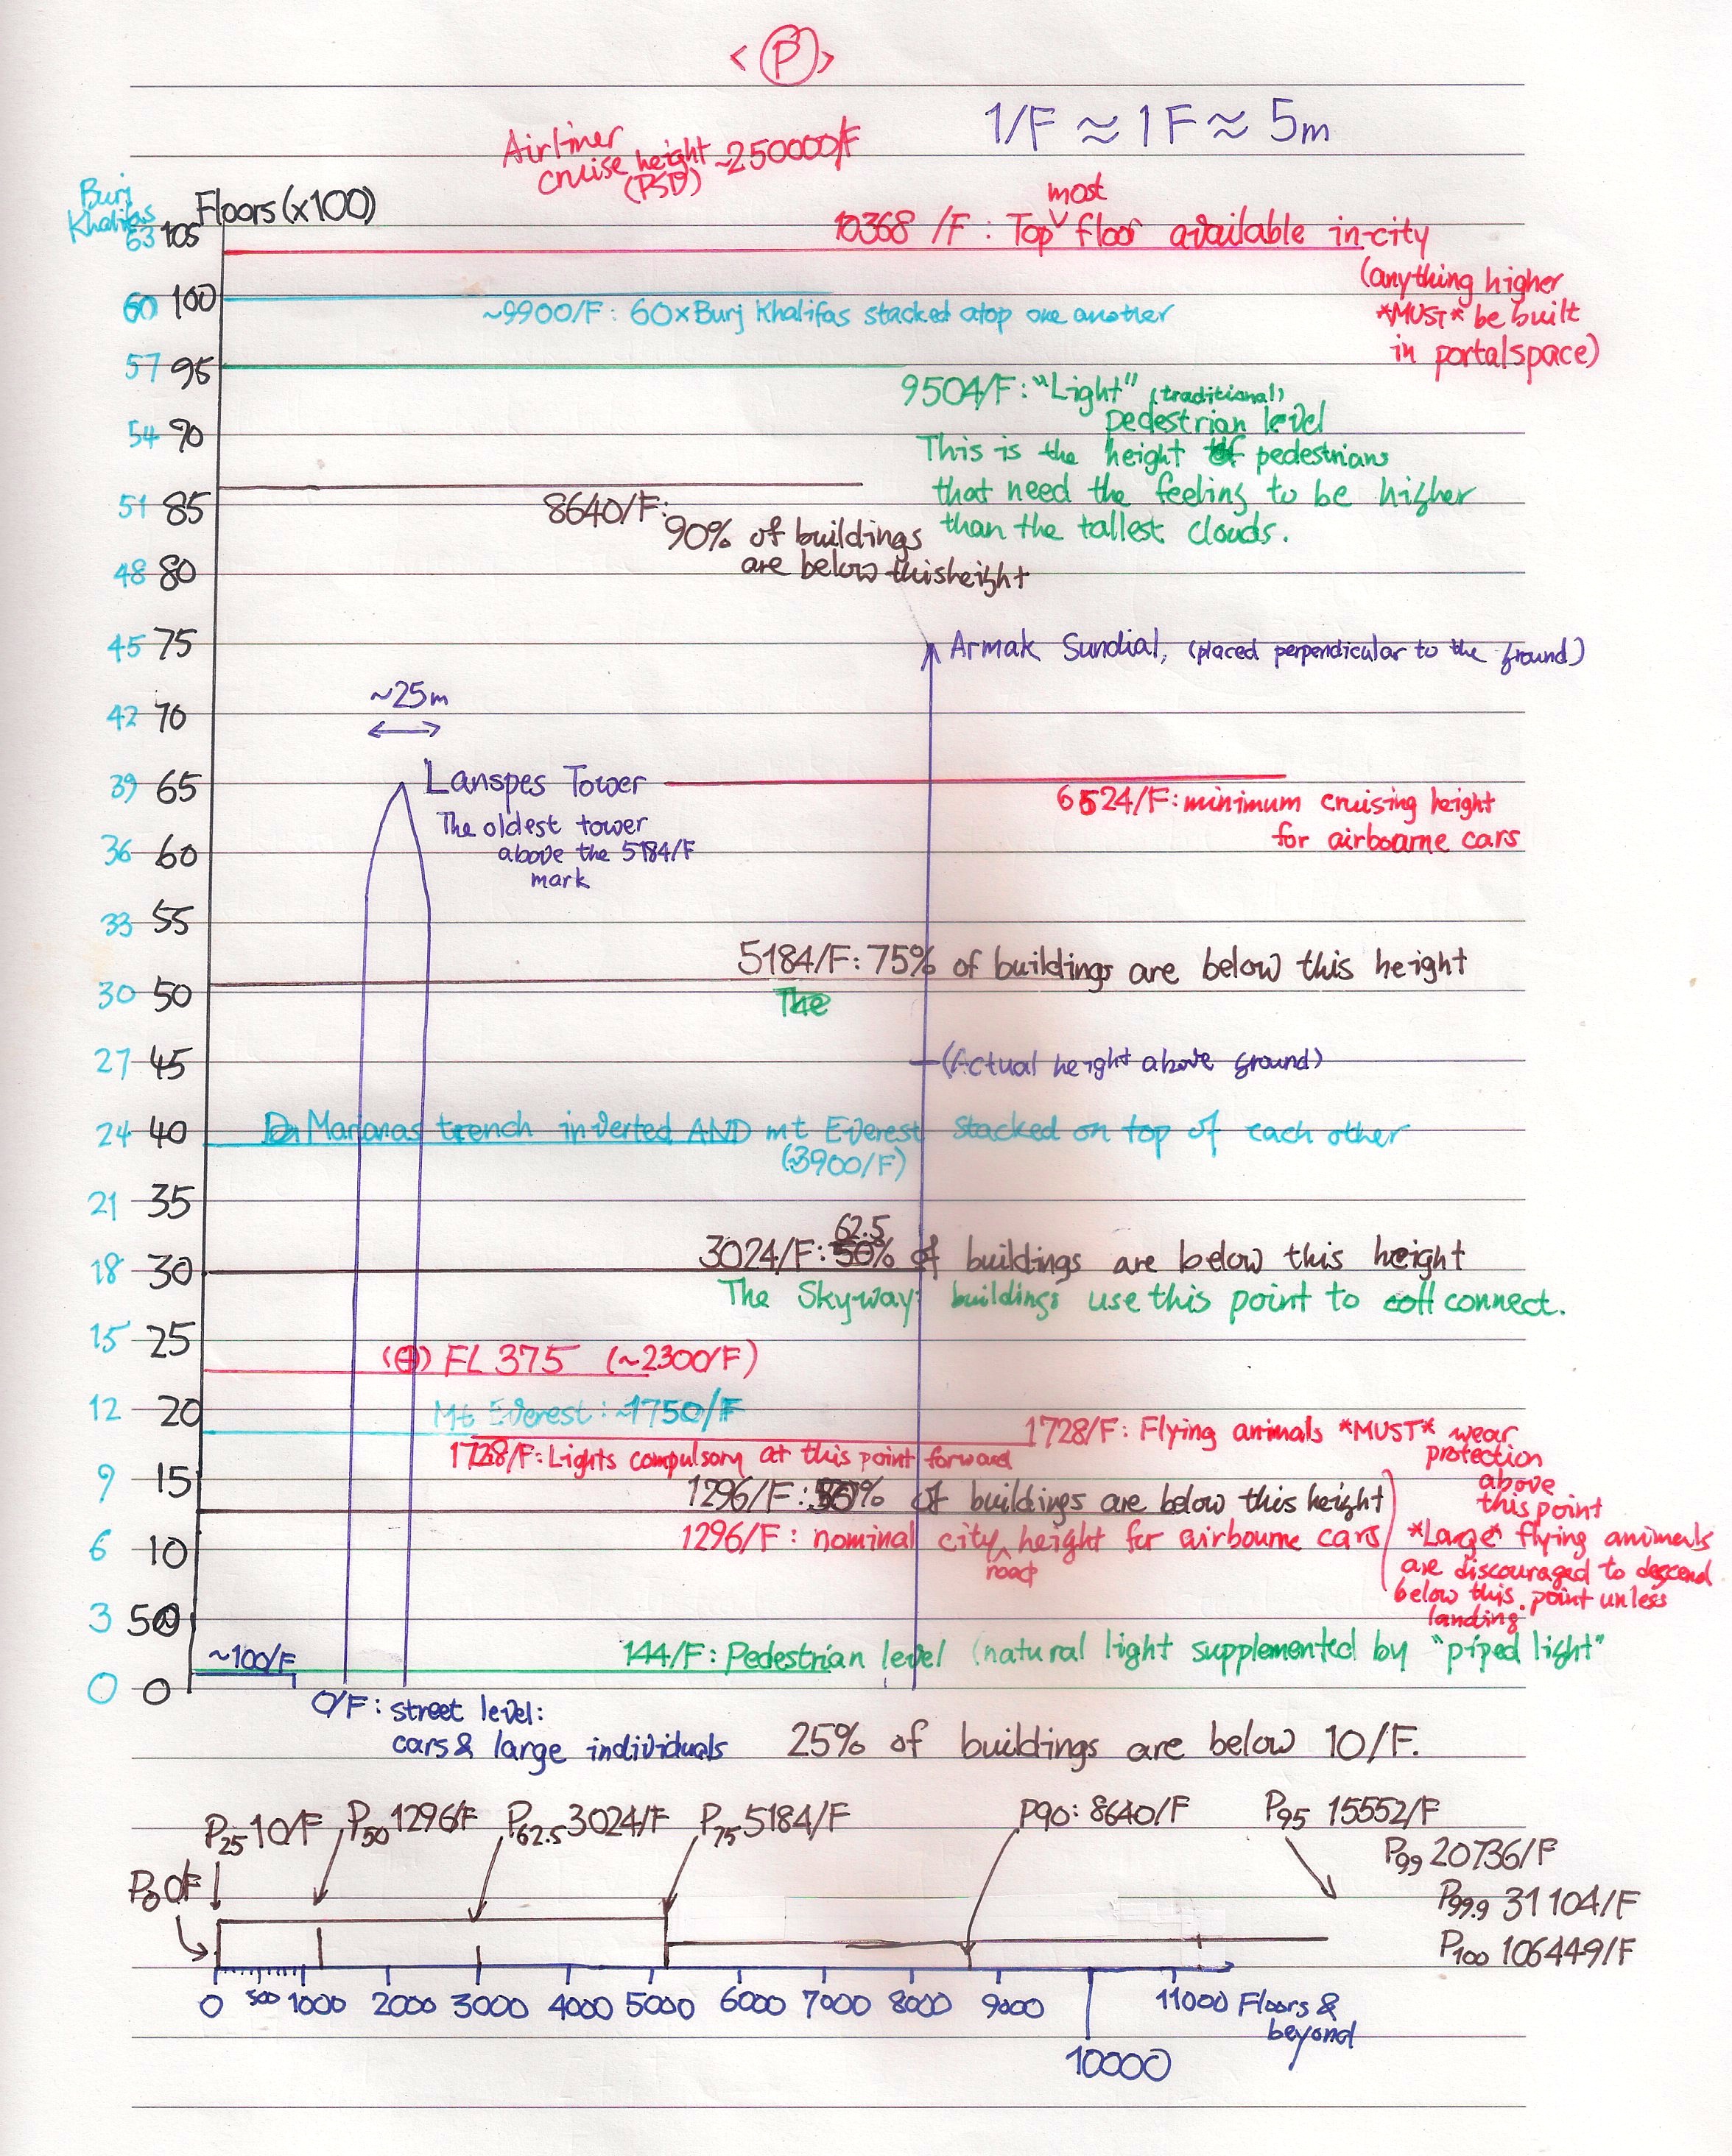 <P>
1/F ≈ 1F ≈ 5m
Airliner
cruise height ~250000/F
(PSD)
Burj
Khalifas
Floors (x100)
most
10368 /F : Top floor available in-city
(anything higher
*MUST* be built
in portalspace)
63 105
60 100
~9900/F: 60x Burj Khalifas stacked atop one another
57 95
9504/F: "Light" (traditional)
pedestrian level
54 90
This is the height of pedestrians
that need the feeling to be higher
than the tallest clouds.
51 85
8640/F:
90% of buildings
are below this height
48 80
45 75
Armak Sundial, (placed perpendicular to the ground)
~25m
42 70
39 65
Lanspes Tower
The oldest tower
above the 5184/F
mark
6524/F: minimum cruising height
for airbourne cars
36 60
33 55
5184/F: 75% of buildings are below this height
30 50
The
27 45
(Actual height above ground)
24 40
Marianas trench inverted AND mt Everest stacked on top of each other
(~3900/F)
21 35
62.5
3024/F: 50% of buildings are below this height
18 30
The Skyway: buildings use this point to connect.
15 25
(⊕) FL 375 (~2300/F)
12 20
Mt Everest: ~1750/F
1728/F: Flying animals *MUST* wear
protection
above
this point
1728/F: Lights compulsory at this point forward
9 15
1296/F: 50% of buildings are below this height
1296/F: nominal city height for airbourne cars
road
*Large* flying animals
are discouraged to descend
below this point unless
landing.
6 10
3 5
144/F: Pedestrian level (natural light supplemented by "piped light"
~100/F
0 0
0/F: street level:
cars & large individuals
25% of buildings are below 10/F.
P25 10/F P50 1296/F P62.5 3024/F P75 5184/F P90: 8640/F P95 15552/F
P99 20736/F
P0 0F
P99.9 31104/F
P100 106449/F
0 500 1000 2000 3000 4000 5000 6000 7000 8000 9000 11000 Floors &
beyond
10000